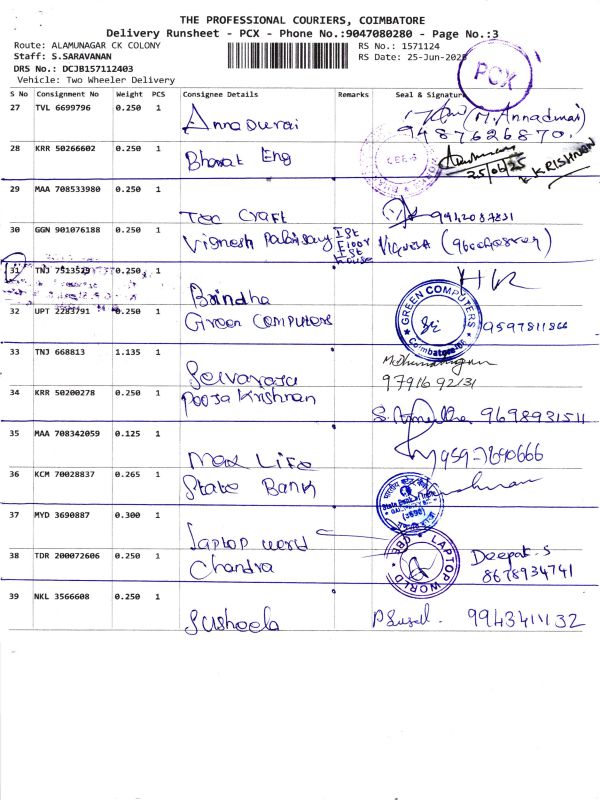 THE PROFESSIONAL COURIERS, COIMBATORE
Delivery Runsheet - PCX - Phone No.:9047080280 - Page No.:3
Route: ALAMUNAGAR CK COLONY
RS No.: 1571124
Staff: S.SARAVANAN
RS Date: 25-Jun-2025
DRS No.: DCJB157112403
Vehicle: Two Wheeler Delivery
PCX
S No Consignment No Weight PCS Consignee Details Remarks Seal & Signature
27 TVL 6699796 0.250 1 Annadurai (M. Annadurai)
9487626870.
28 KRR 50266602 0.250 1 Bharat Eng 25/06/25 KRISHNAN
29 MAA 708533980 0.250 1 Tec Craft
30 GGN 901076188 0.250 1 Vignesh Ist Floor Ist house
31 TNJ 7513529 0.250 1 Brindha
32 UPT 2283791 0.250 1 Green Computers GREEN COMPUTERS Coimbatore
33 TNJ 668813 1.135 1 Selvaraju 97916 92131
34 KRR 50200278 0.250 1 Pooja Krishnan 9698931511
35 MAA 708342059 0.125 1 Max Life
36 KCM 70028837 0.265 1 State Bank
37 MYD 3690887 0.300 1 Laptop world LAPTOP WORLD
38 TDR 200072606 0.250 1 Chandra Deepak.S
8678934741
39 NKL 3566608 0.250 1 Susheela 9943411132